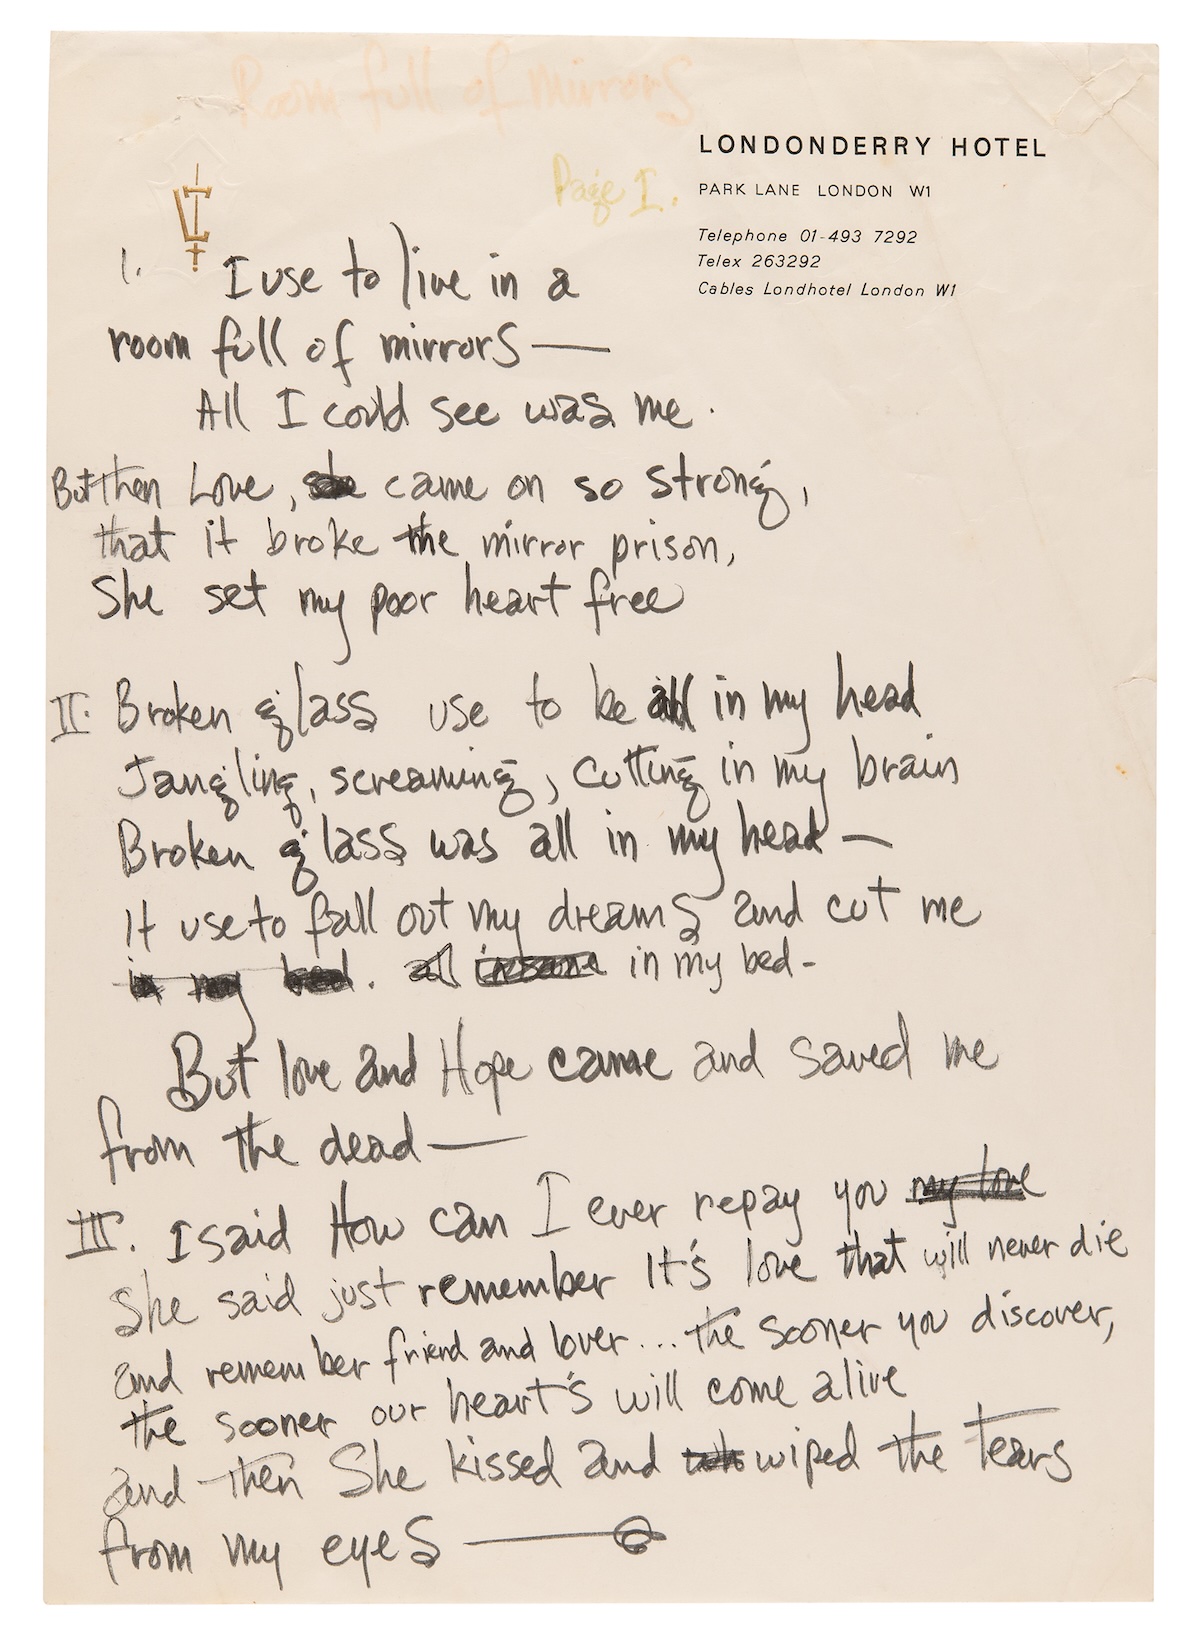 Room full of mirrors
LONDONDERRY HOTEL
PARK LANE LONDON W1
Page I.
Telephone 01-493 7292
Telex 263292
Cables Londhotel London W1
1. I use to live in a
room full of mirrors —
All I could see was me.
But then Love, she came on so strong,
that it broke the mirror prison,
She set my poor heart free
II. Broken glass use to be all in my head
Jangling, screaming, cutting in my brain
Broken glass was all in my head —
It use to fall out my dreams and cut me
in my bed. all insane in my bed -
But love and Hope came and saved me
from the dead —
III. I said How can I ever repay you my love
She said just remember It's love that will never die
and remember friend and lover... the sooner you discover,
the sooner our heart's will come alive
and then She kissed and wiped the tears
from my eyes —